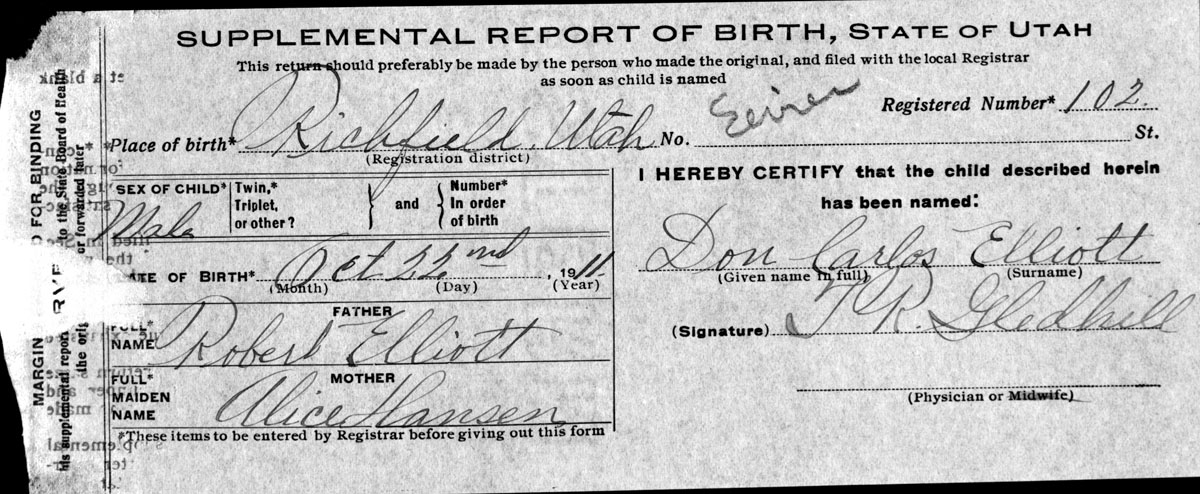 SUPPLEMENTAL REPORT OF BIRTH, STATE OF UTAH
This return should preferably be made by the person who made the original, and filed with the local Registrar
as soon as child is named
Registered Number* 102
Place of birth* Richfield, Utah No. St.
(Registration district)
SEX OF CHILD*
Male
Twin,*
Triplet,
or other?
and
Number*
In order
of birth
DATE OF BIRTH* Oct 22nd, 1911
(Month) (Day) (Year)
FATHER
FULL*
NAME Robert Elliott
MOTHER
FULL*
MAIDEN
NAME Alice Hansen
*These items to be entered by Registrar before giving out this form
I HEREBY CERTIFY that the child described herein
has been named:
Don Carlos Elliott
(Given name in full) (Surname)
(Signature) T R. Gledhill
(Physician or Midwife)
MARGIN FOR BINDING
his supplemental report to the State Board of Health
the ori or forwarded later